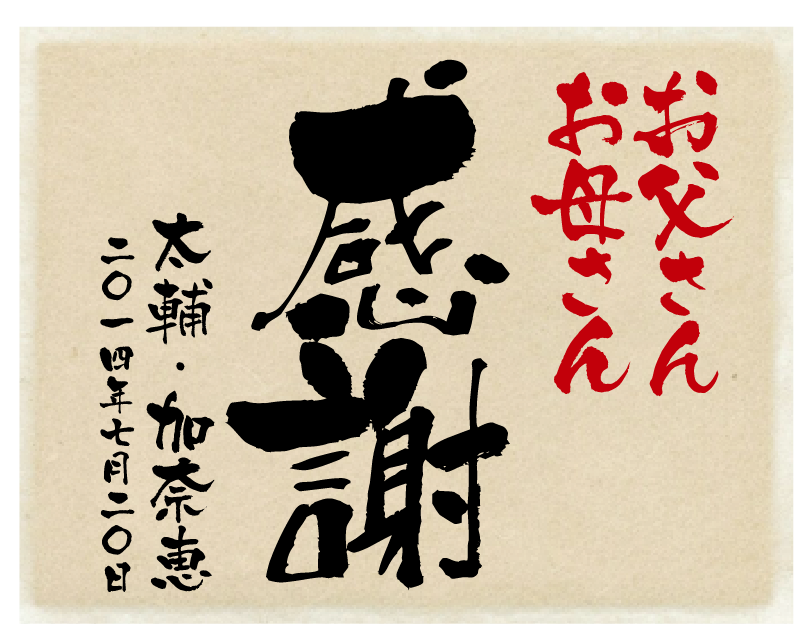 お父さん
お母さん
感謝
太輔・加奈恵
二〇一四年七月二〇日